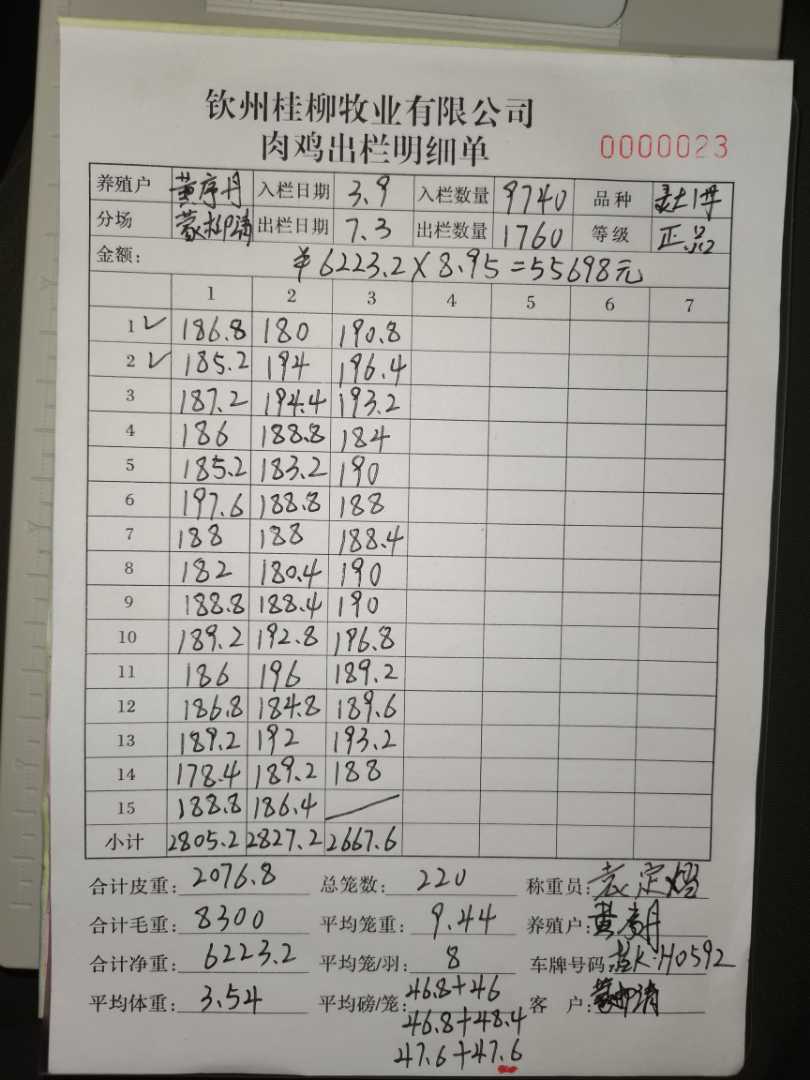 钦州桂柳牧业有限公司
肉鸡出栏明细单 0000023
养殖户 黄序丹 入栏日期 3.9 入栏数量 9740 品种
分场 出栏日期 7.3 出栏数量 1760 等级 正品
金额: ¥6223.2×8.95=55698元
1 2 3 4 5 6 7
1 ✓ 186.8 180 190.8
2 ✓ 185.2 194 196.4
3 187.2 194.4 193.2
4 186 188.8 184
5 185.2 183.2 190
6 197.6 188.8 188
7 188 188 188.4
8 182 180.4 190
9 188.8 188.4 190
10 189.2 192.8 196.8
11 186 196 189.2
12 186.8 184.8 189.6
13 189.2 192 193.2
14 178.4 189.2 188
15 188.8 186.4
小计 2805.2 2827.2 2667.6
合计皮重: 2076.8 总笼数: 220 称重员: 袁定
合计毛重: 8300 平均笼重: 9.44 养殖户: 黄序丹
合计净重: 6223.2 平均笼/羽: 8 车牌号码: H0592
平均体重: 3.54 平均磅/笼: 46.8+46 客户:
46.8+48.4
47.6+47.6